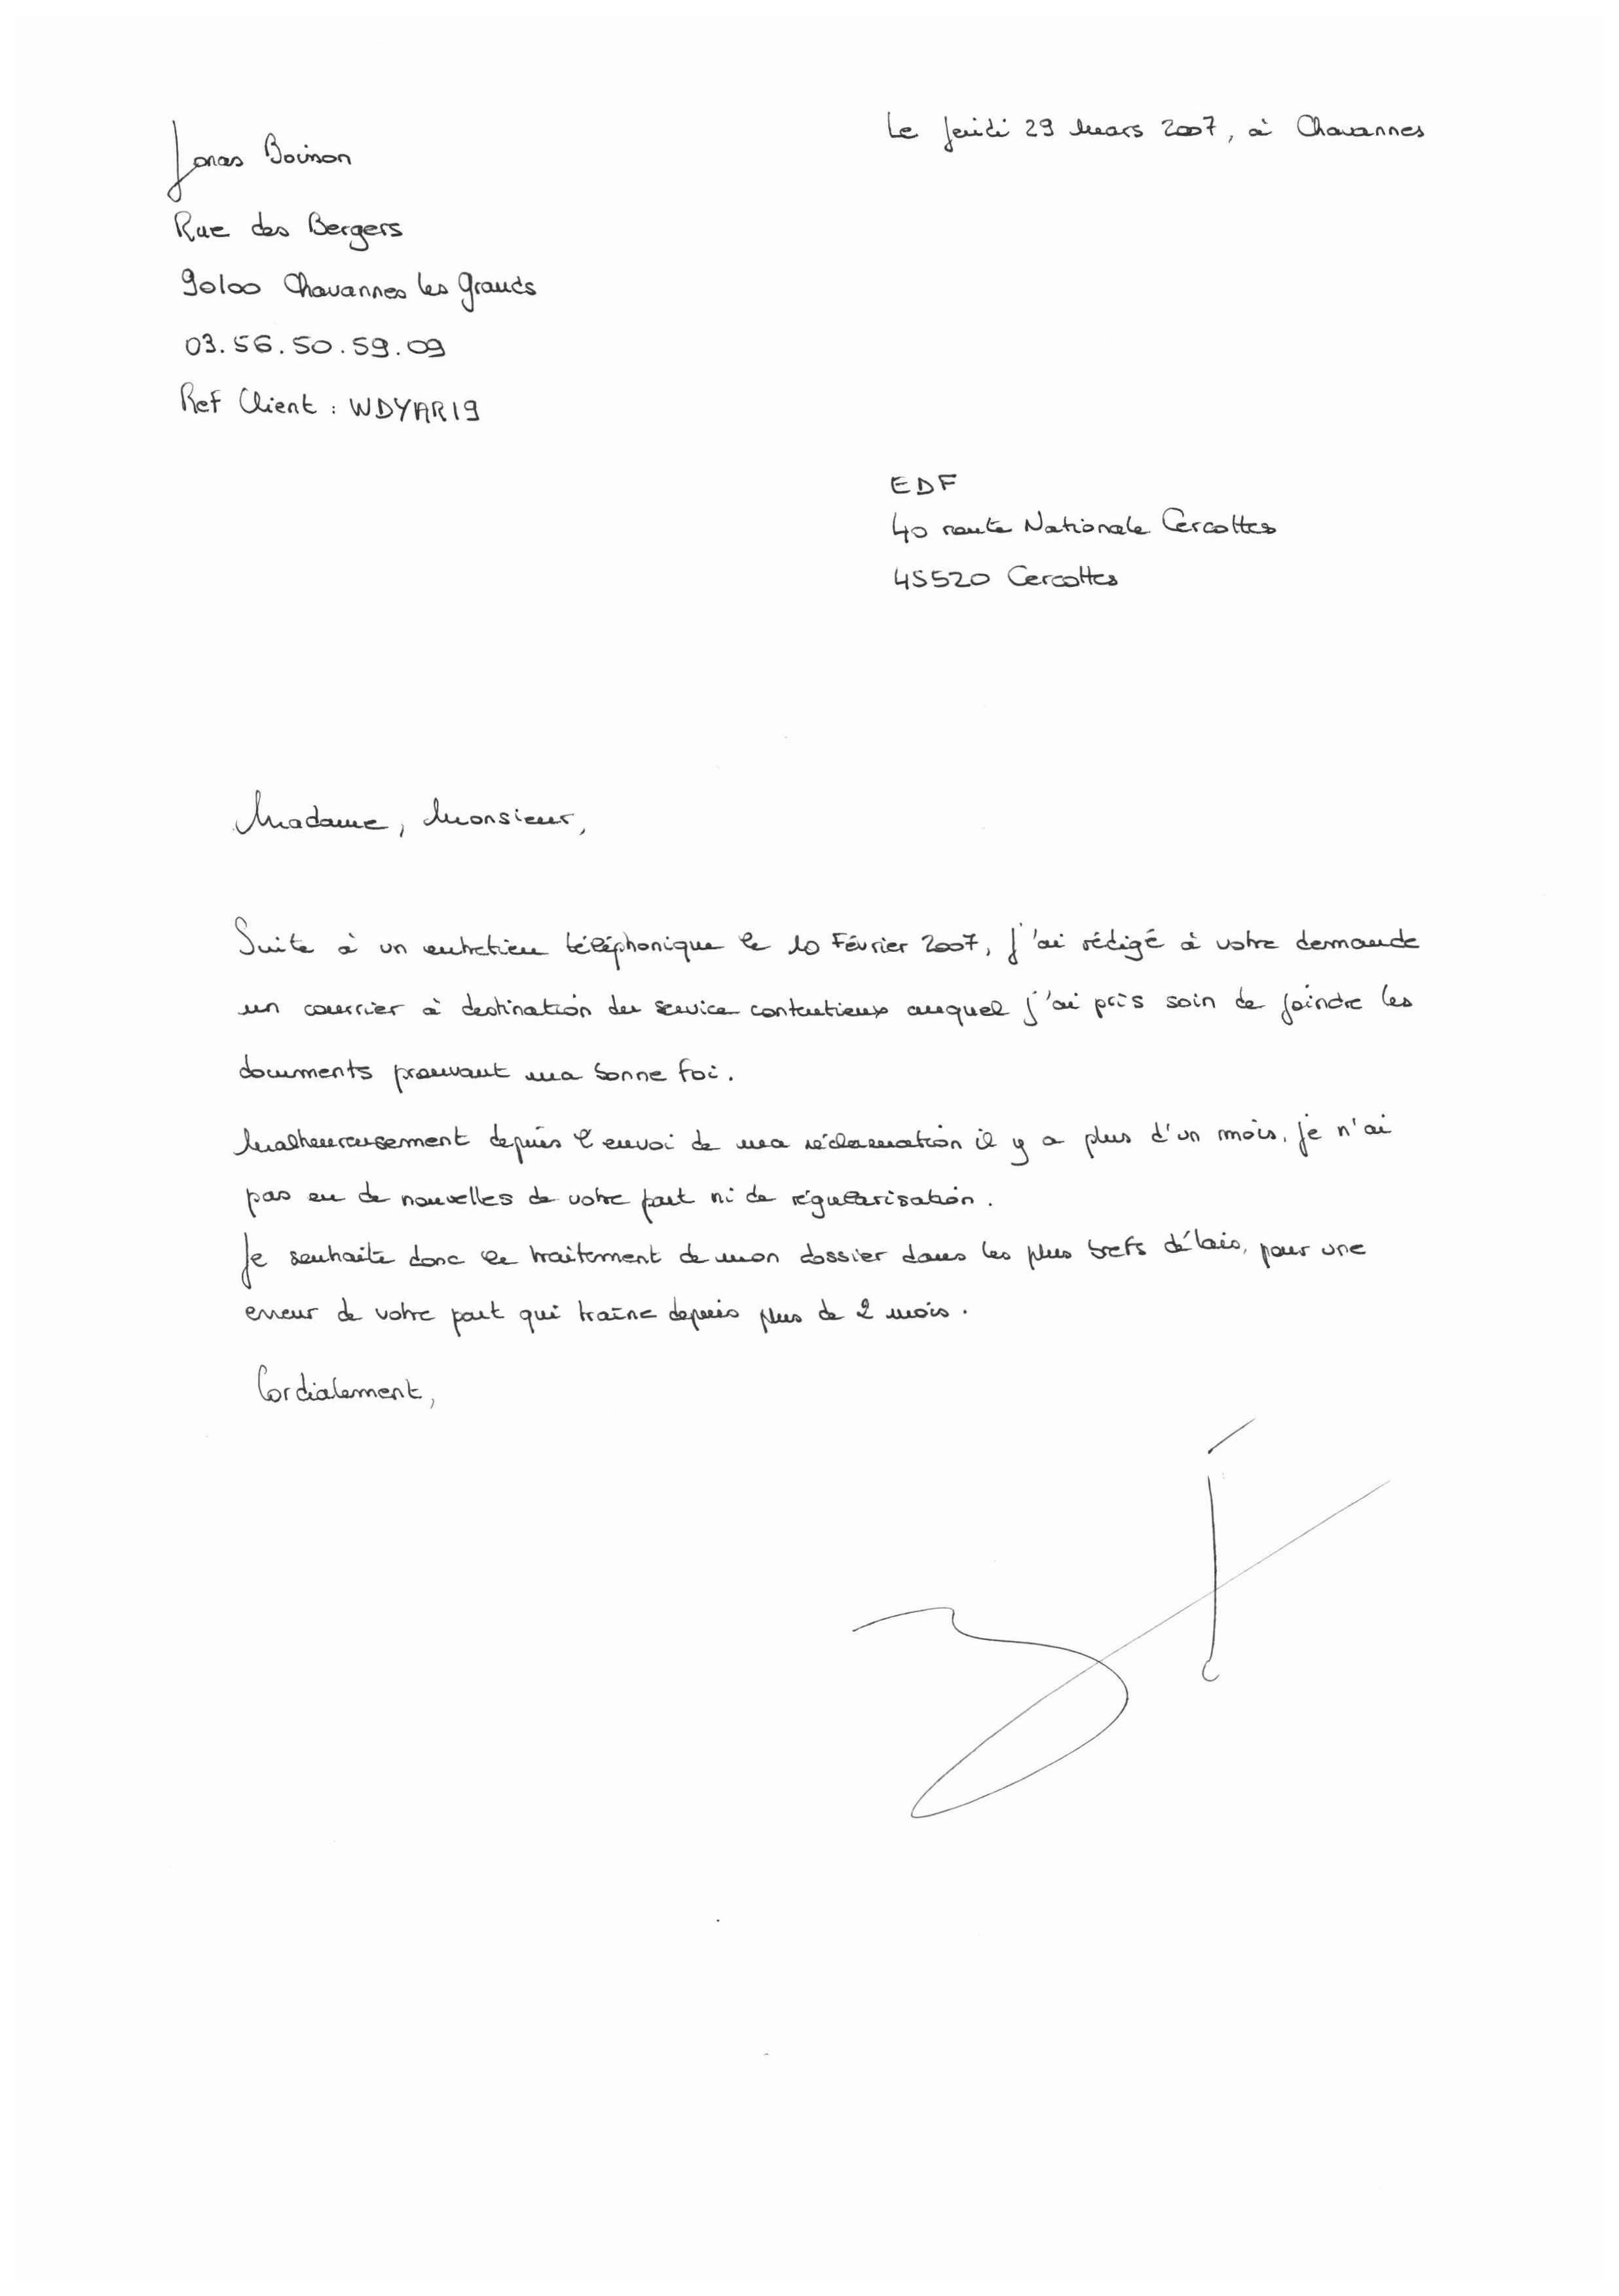 Le Jeudi 29 Mars 2007, à Chavannes
Jonas Boinson
Rue des Bergers
90100 Chavannes les Grands
03.56.50.59.09
Ref Client : WDYAR19
EDF
40 route Nationale Cercottes
45520 Cercottes
Madame, Monsieur,
Suite à un entretien téléphonique le 10 Février 2007, j'ai rédigé à votre demande
un courrier à destination du service contentieux auquel j'ai pris soin de joindre les
documents prouvant ma bonne foi.
Malheureusement depuis l'envoi de ma réclamation il y a plus d'un mois, je n'ai
pas eu de nouvelles de votre part ni de régularisation.
Je souhaite donc le traitement de mon dossier dans les plus brefs délais, pour une
erreur de votre part qui traîne depuis plus de 2 mois.
Cordialement,